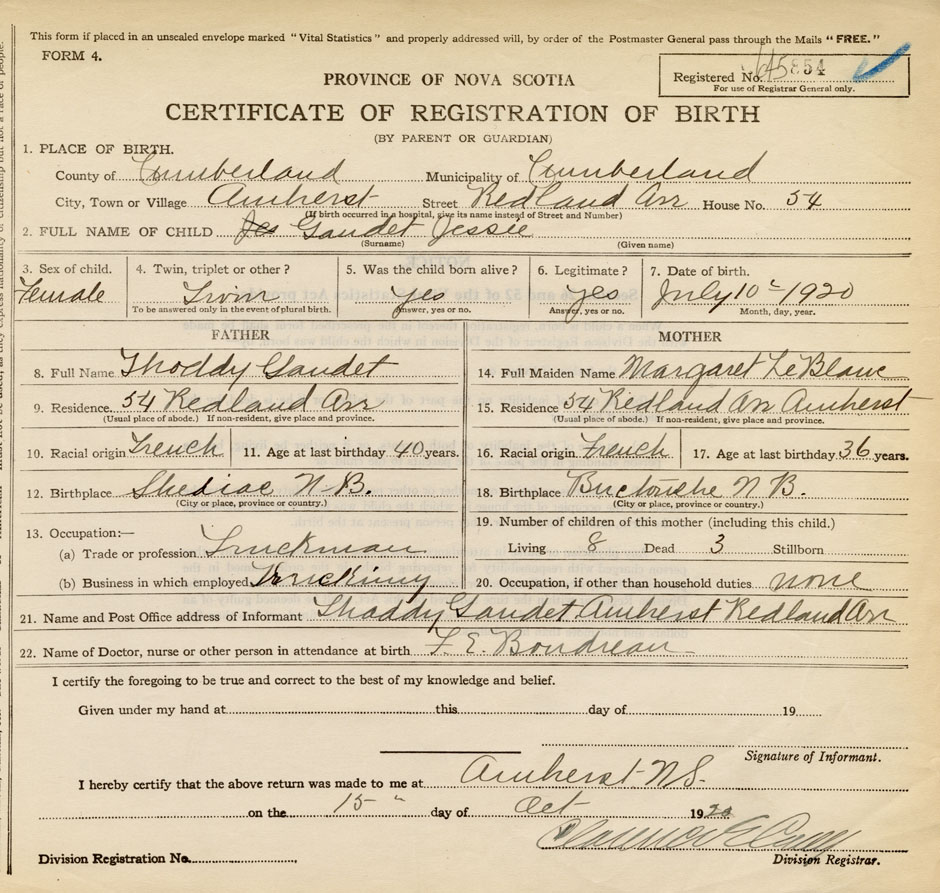 This form if placed in an unsealed envelope marked "Vital Statistics" and properly addressed will, by order of the Postmaster General pass through the Mails "FREE."
FORM 4.
PROVINCE OF NOVA SCOTIA
Registered No. 645854
For use of Registrar General only.
CERTIFICATE OF REGISTRATION OF BIRTH
(BY PARENT OR GUARDIAN)
1. PLACE OF BIRTH.
County of Cumberland Municipality of Cumberland
City, Town or Village Amherst Street Redland Arr House No. 54
(If birth occurred in a hospital, give its name instead of Street and Number)
2. FULL NAME OF CHILD Jes Gaudet Jessie
(Surname) (Given name)
3. Sex of child. 4. Twin, triplet or other? 5. Was the child born alive? 6. Legitimate? 7. Date of birth.
Female Twin yes yes July 10 1920
To be answered only in the event of plural birth. Answer, yes or no. Answer, yes or no. Month, day, year.
FATHER MOTHER
8. Full Name Thoddy Gaudet 14. Full Maiden Name Margaret LeBlanc
9. Residence. 54 Redland Arr 15. Residence 54 Redland Arr Amherst
(Usual place of abode.) If non-resident, give place and province. (Usual place of abode.) If non-resident, give place and province.
10. Racial origin French 11. Age at last birthday 40 years. 16. Racial origin French 17. Age at last birthday 36 years.
12. Birthplace Shediac N.B. 18. Birthplace Buctouche N B.
(City or place, province or country.) (City or place, province or country.)
13. Occupation:— 19. Number of children of this mother (including this child.)
(a) Trade or profession Truckman Living 8 Dead 3 Stillborn
(b) Business in which employed Trucking 20. Occupation, if other than household duties. none
21. Name and Post Office address of Informant Thoddy Gaudet Amherst Redland Arr
22. Name of Doctor, nurse or other person in attendance at birth F. E. Boudreau
I certify the foregoing to be true and correct to the best of my knowledge and belief.
Given under my hand at this day of 19
Signature of Informant.
I hereby certify that the above return was made to me at Amherst N.S.
on the 15 day of Oct 1920
Division Registration No. Division Registrar.